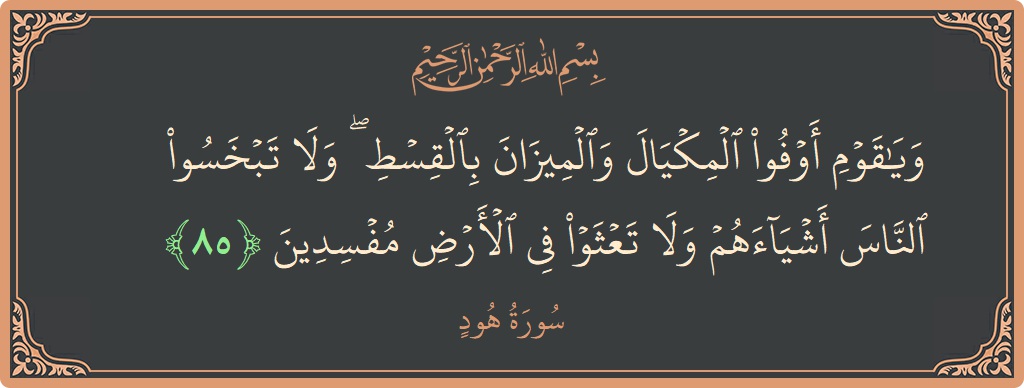 بِسْمِ ٱللَّهِ ٱلرَّحْمَٰنِ ٱلرَّحِيمِ
وَيَـٰقَوْمِ أَوْفُوا۟ ٱلْمِكْيَالَ وَٱلْمِيزَانَ بِٱلْقِسْطِ ۖ وَلَا تَبْخَسُوا۟
ٱلنَّاسَ أَشْيَآءَهُمْ وَلَا تَعْثَوْا۟ فِى ٱلْأَرْضِ مُفْسِدِينَ ﴿٨٥﴾
سُورَةُ هُودٍ